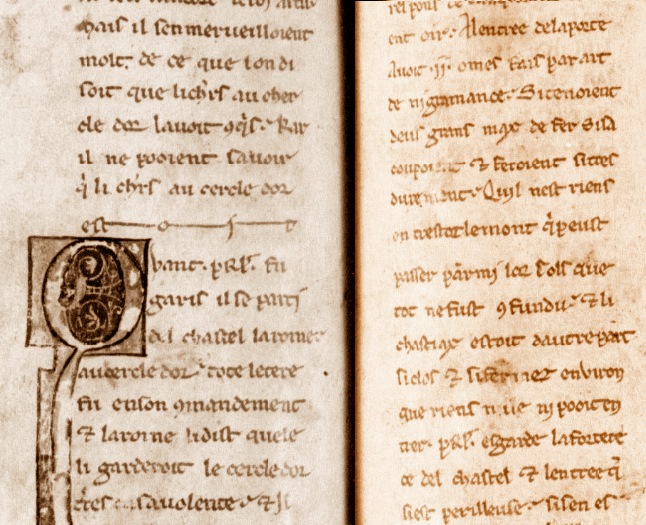 Mais il senmerueilloient
molt de ce que lon di
soit que lichrs au cher
cle dor lauoit 9q̃s. Kar
il ne pooient sauoir
q̃ li chrs au cercle dor
est
Quant .perł. fu
garis il se parti
del chastel laroine
aucercle dor tote letere
fu enson 9mandement
⁊ laroine lidist quele
li garderoit le cercle dor
uolente. ⁊ il
ent oir. Alentree delaporte
Auoit .ij. omes fais par art
de nigramance. Si tenoient
deus grans max de fer si sa
⁊ feroient si tres
durement. Quil nest riens
en trestot lemont q̃ peust
passer parmi lor cols que
tot ne fust 9fundu. ⁊ li
chastiax estoit dautre part
si clos ⁊ si fermez enuiron
que riens niue ni pooit en
trer. perł. esgarde la fortere
ce del chastel ⁊ lentree q̃
siest perilleuse. si sen es